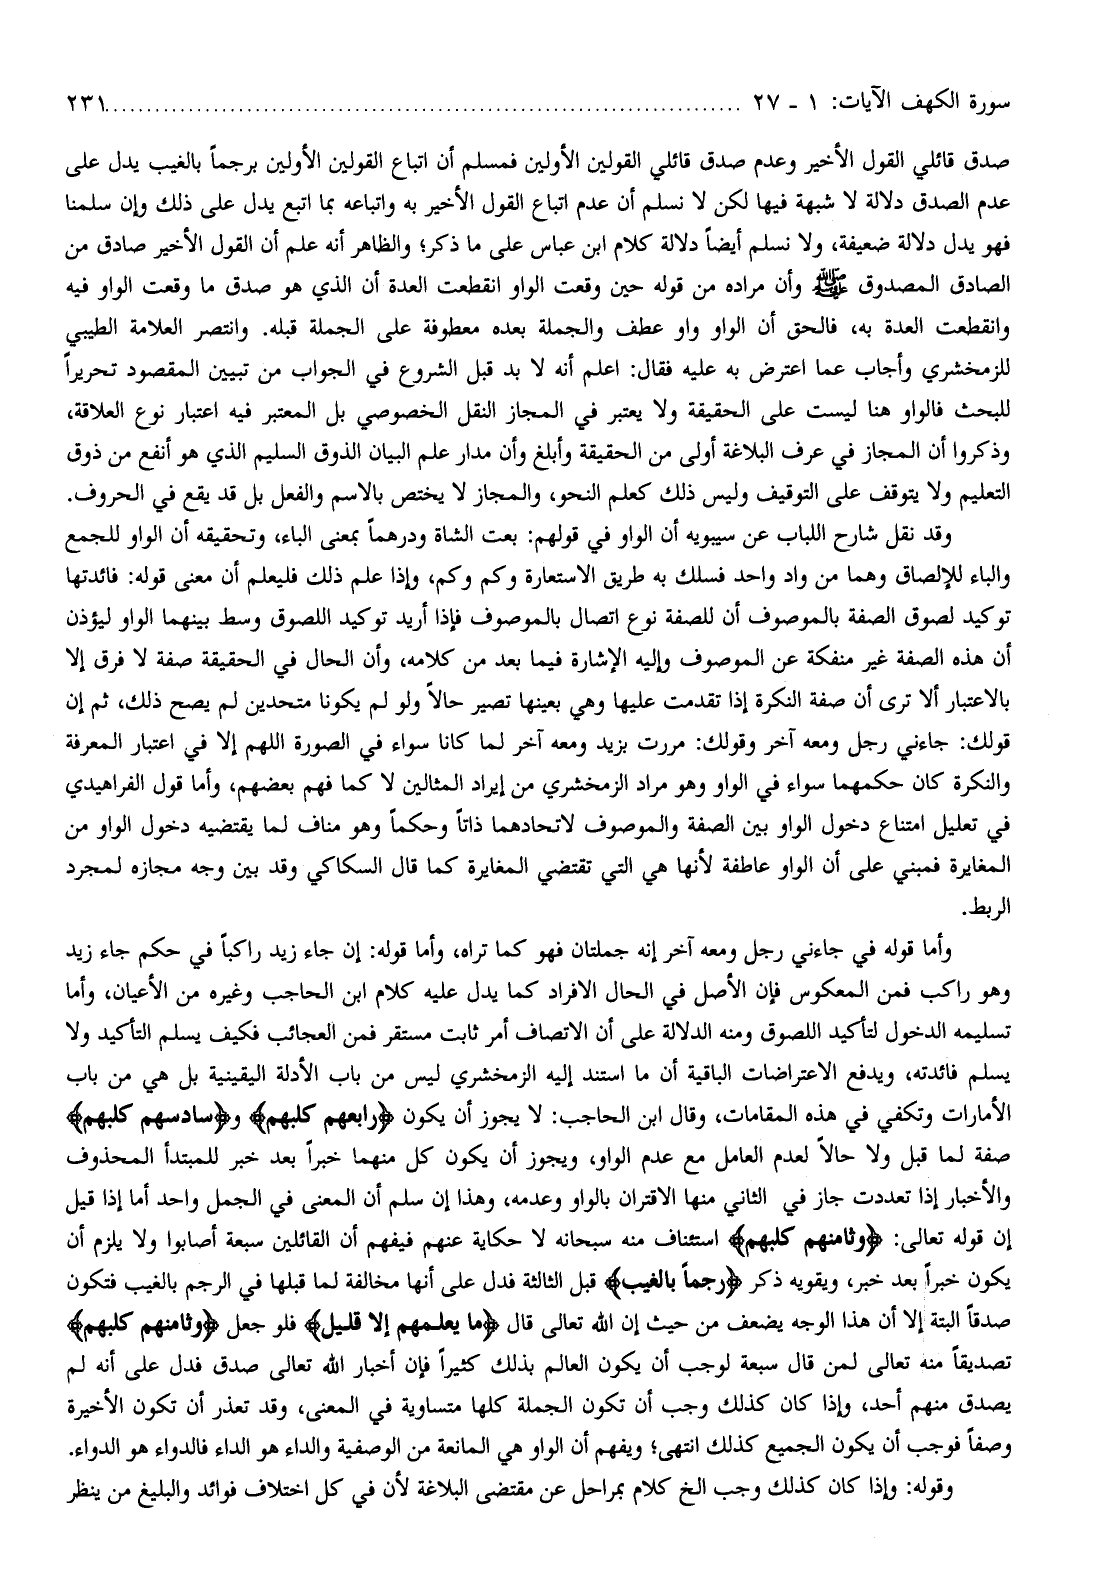 سورة الكهف الآيات: ١ - ٢٧ ............................................................................ ٢٣١
صدق قائلي القول الأخير وعدم صدق قائلي القولين الأولين فمسلم أن اتباع القولين الأولين برجماً بالغيب يدل على
عدم الصدق دلالة لا شبهة فيها لكن لا نسلم أن عدم اتباع القول الأخير به واتباعه بما اتبع يدل على ذلك وإن سلمنا
فهو يدل دلالة ضعيفة، ولا نسلم أيضاً دلالة كلام ابن عباس على ما ذكر؛ والظاهر أنه علم أن القول الأخير صادق من
الصادق المصدوق ﷺ وأن مراده من قوله حين وقعت الواو انقطعت العدة أن الذي هو صدق ما وقعت الواو فيه
وانقطعت العدة به، فالحق أن الواو واو عطف والجملة بعده معطوفة على الجملة قبله. وانتصر العلامة الطيبي
للزمخشري وأجاب عما اعترض به عليه فقال: اعلم أنه لا بد قبل الشروع في الجواب من تبيين المقصود تحريراً
للبحث فالواو هنا ليست على الحقيقة ولا يعتبر في المجاز النقل الخصوصي بل المعتبر فيه اعتبار نوع العلاقة،
وذكروا أن المجاز في عرف البلاغة أولى من الحقيقة وأبلغ وأن مدار علم البيان الذوق السليم الذي هو أنفع من ذوق
التعليم ولا يتوقف على التوقيف وليس ذلك كعلم النحو، والمجاز لا يختص بالاسم والفعل بل قد يقع في الحروف.
وقد نقل شارح اللباب عن سيبويه أن الواو في قولهم: بعت الشاة ودرهماً بمعنى الباء، وتحقيقه أن الواو للجمع
والباء للإلصاق وهما من واد واحد فسلك به طريق الاستعارة وكم وكم، وإذا علم ذلك فليعلم أن معنى قوله: فائدتها
توكيد لصوق الصفة بالموصوف أن للصفة نوع اتصال بالموصوف فإذا أريد توكيد اللصوق وسط بينهما الواو ليؤذن
أن هذه الصفة غير منفكة عن الموصوف وإليه الإشارة فيما بعد من كلامه، وأن الحال في الحقيقة صفة لا فرق إلا
بالاعتبار ألا ترى أن صفة النكرة إذا تقدمت عليها وهي بعينها تصير حالاً ولو لم يكونا متحدين لم يصح ذلك، ثم إن
قولك: جاءني رجل ومعه آخر وقولك: مررت بزيد ومعه آخر لما كانا سواء في الصورة اللهم إلا في اعتبار المعرفة
والنكرة كان حكمهما سواء في الواو وهو مراد الزمخشري من إيراد المثالين لا كما فهم بعضهم، وأما قول الفراهيدي
في تعليل امتناع دخول الواو بين الصفة والموصوف لاتحادهما ذاتاً وحكماً وهو مناف لما يقتضيه دخول الواو من
المغايرة فمبني على أن الواو عاطفة لأنها هي التي تقتضي المغايرة كما قال السكاكي وقد بين وجه مجازه لمجرد
الربط.
وأما قوله في جاءني رجل ومعه آخر إنه جملتان فهو كما تراه، وأما قوله: إن جاء زيد راكباً في حكم جاء زيد
وهو راكب فمن المعكوس فإن الأصل في الحال الافراد كما يدل عليه كلام ابن الحاجب وغيره من الأعيان، وأما
تسليمه الدخول لتأكيد اللصوق ومنه الدلالة على أن الاتصاف أمر ثابت مستقر فمن العجائب فكيف يسلم التأكيد ولا
يسلم فائدته، ويدفع الاعتراضات الباقية أن ما استند إليه الزمخشري ليس من باب الأدلة اليقينية بل هي من باب
الأمارات وتكفي في هذه المقامات، وقال ابن الحاجب: لا يجوز أن يكون ﴿رابعهم كلبهم﴾ و﴿سادسهم كلبهم﴾
صفة لما قبل ولا حالاً لعدم العامل مع عدم الواو، ويجوز أن يكون كل منهما خبراً بعد خبر للمبتدأ المحذوف
والأخبار إذا تعددت جاز في الثاني منها الاقتران بالواو وعدمه، وهذا إن سلم أن المعنى في الجمل واحد أما إذا قيل
إن قوله تعالى: ﴿وثامنهم كلبهم﴾ استئناف منه سبحانه لا حكاية عنهم فيفهم أن القائلين سبعة أصابوا ولا يلزم أن
يكون خبراً بعد خبر، ويقويه ذكر ﴿رجماً بالغيب﴾ قبل الثالثة فدل على أنها مخالفة لما قبلها في الرجم بالغيب فتكون
صدقاً البتة إلا أن هذا الوجه يضعف من حيث إن الله تعالى قال ﴿ما يعلمهم إلا قليل﴾ فلو جعل ﴿وثامنهم كلبهم﴾
تصديقاً منه تعالى لمن قال سبعة لوجب أن يكون العالم بذلك كثيراً فإن أخبار الله تعالى صدق فدل على أنه لم
يصدق منهم أحد، وإذا كان كذلك وجب أن تكون الجملة كلها متساوية في المعنى، وقد تعذر أن تكون الأخيرة
وصفاً فوجب أن يكون الجميع كذلك انتهى؛ ويفهم أن الواو هي المانعة من الوصفية والداء هو الداء فالدواء هو الدواء.
وقوله: وإذا كان كذلك وجب الخ كلام بمراحل عن مقتضى البلاغة لأن في كل اختلاف فوائد والبليغ من ينظر